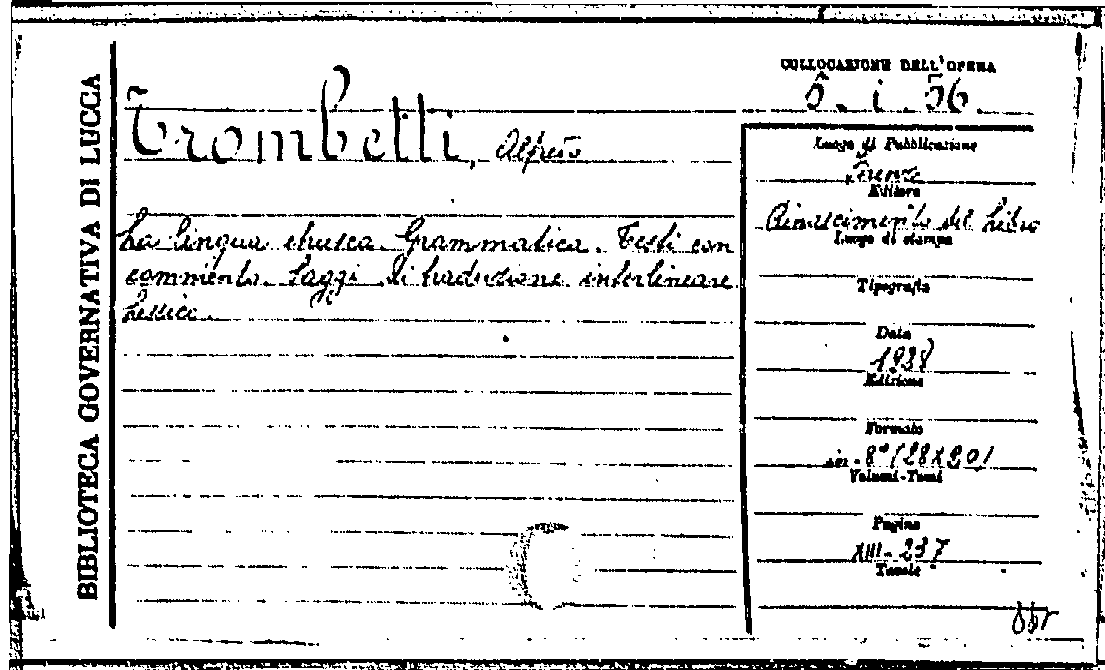 BIBLIOTECA GOVERNATIVA DI LUCCA
COLLOCAZIONE DELL'OPERA
O. i. 56.
Trombetti, Alfredo
La lingua etrusca. Grammatica. Testi con
commento. Saggi di traduzione interlineare
Lessico.
Luogo di Pubblicazione
Firenze
Editore
Rinascimento del Libro
Luogo di stampa
Tipografia
Data
1928
Edizione
Formato
in-8°/28X20/
Volumi-Tomi
Pagine
XIII-237
Tavole